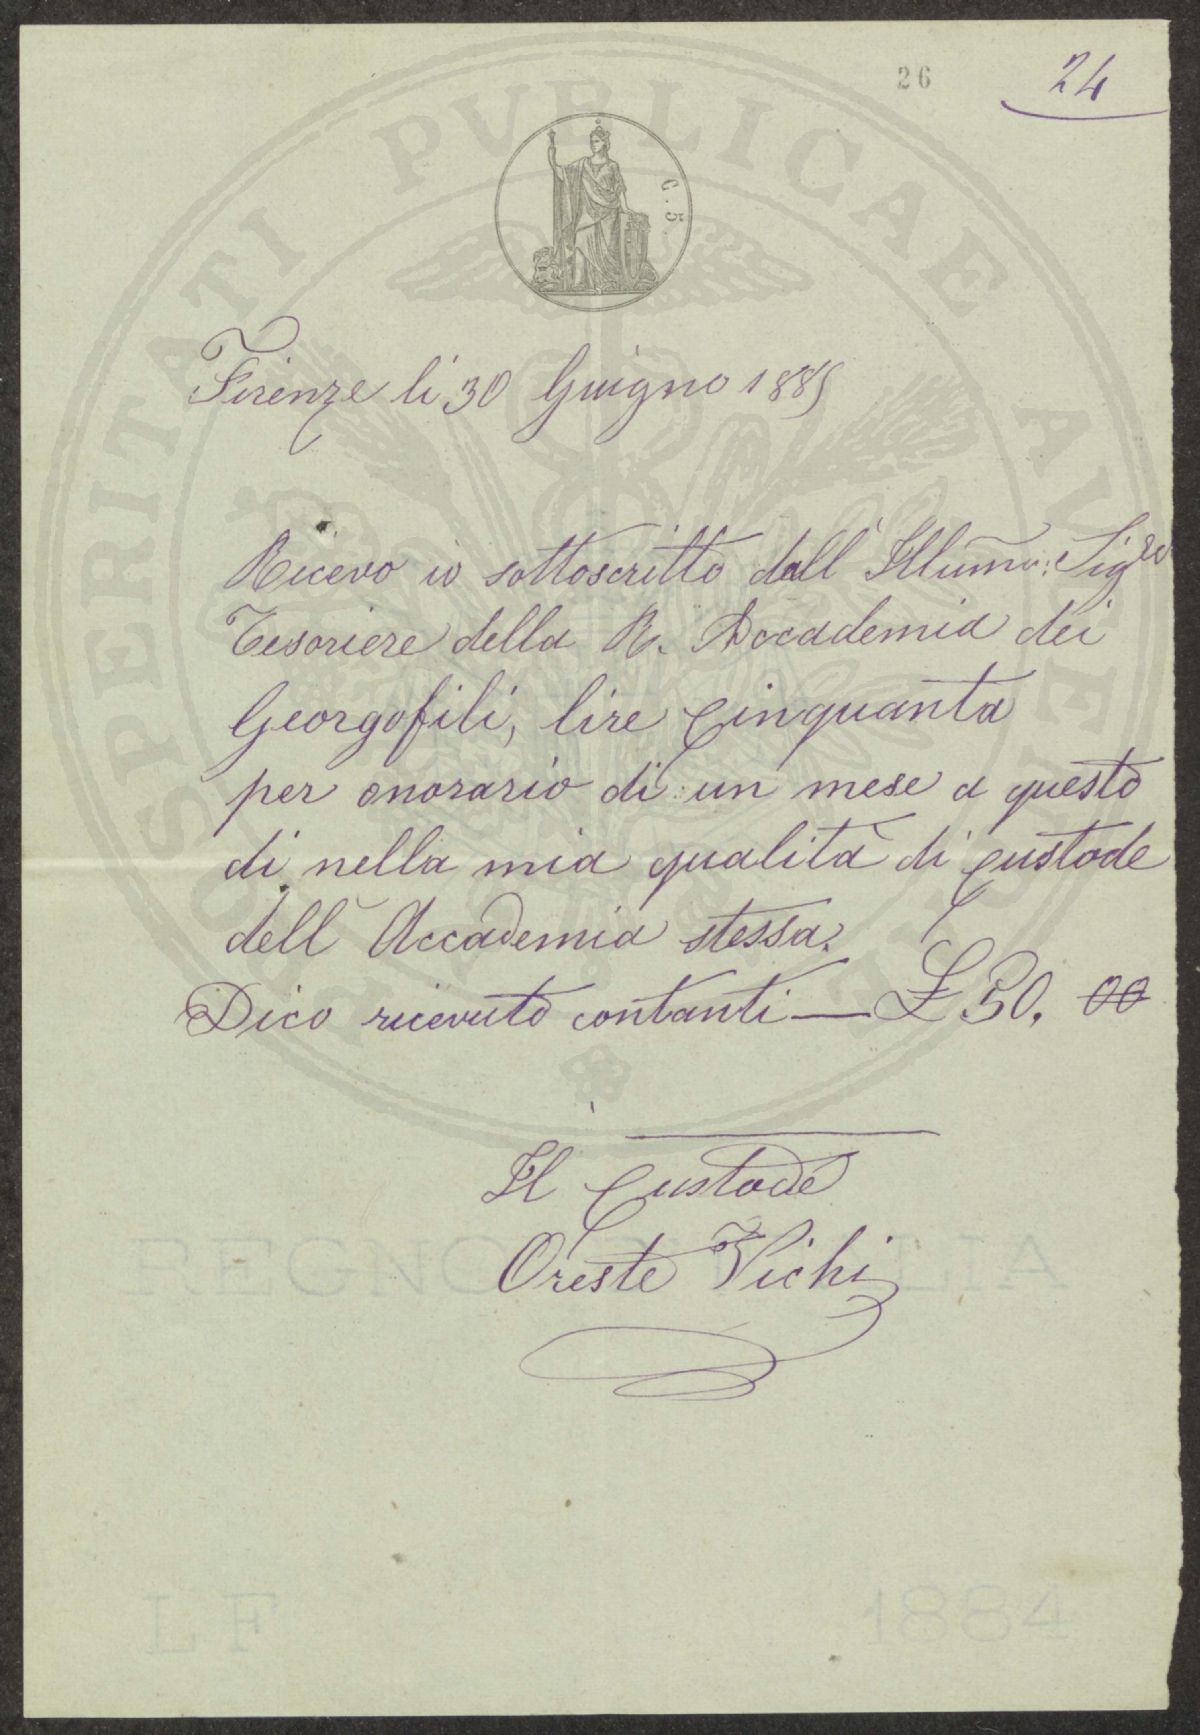 26
24
C. 5
Firenze li 30 Giugno 1885
Ricevo io sottoscritto dall' Illumo: Sigre
Tesoriere della R. Accademia dei
Georgofili, lire Cinquanta
per onorario di un mese a questo
di nella mia qualità di custode
dell' Accademia stessa.
Dico ricevuto contanti — £ 50. 00
Il Custode
Oreste Vichi
REGNO D'ITALIA
LF 1884
PROSPERITATI PVBLICAE AVGENDAE